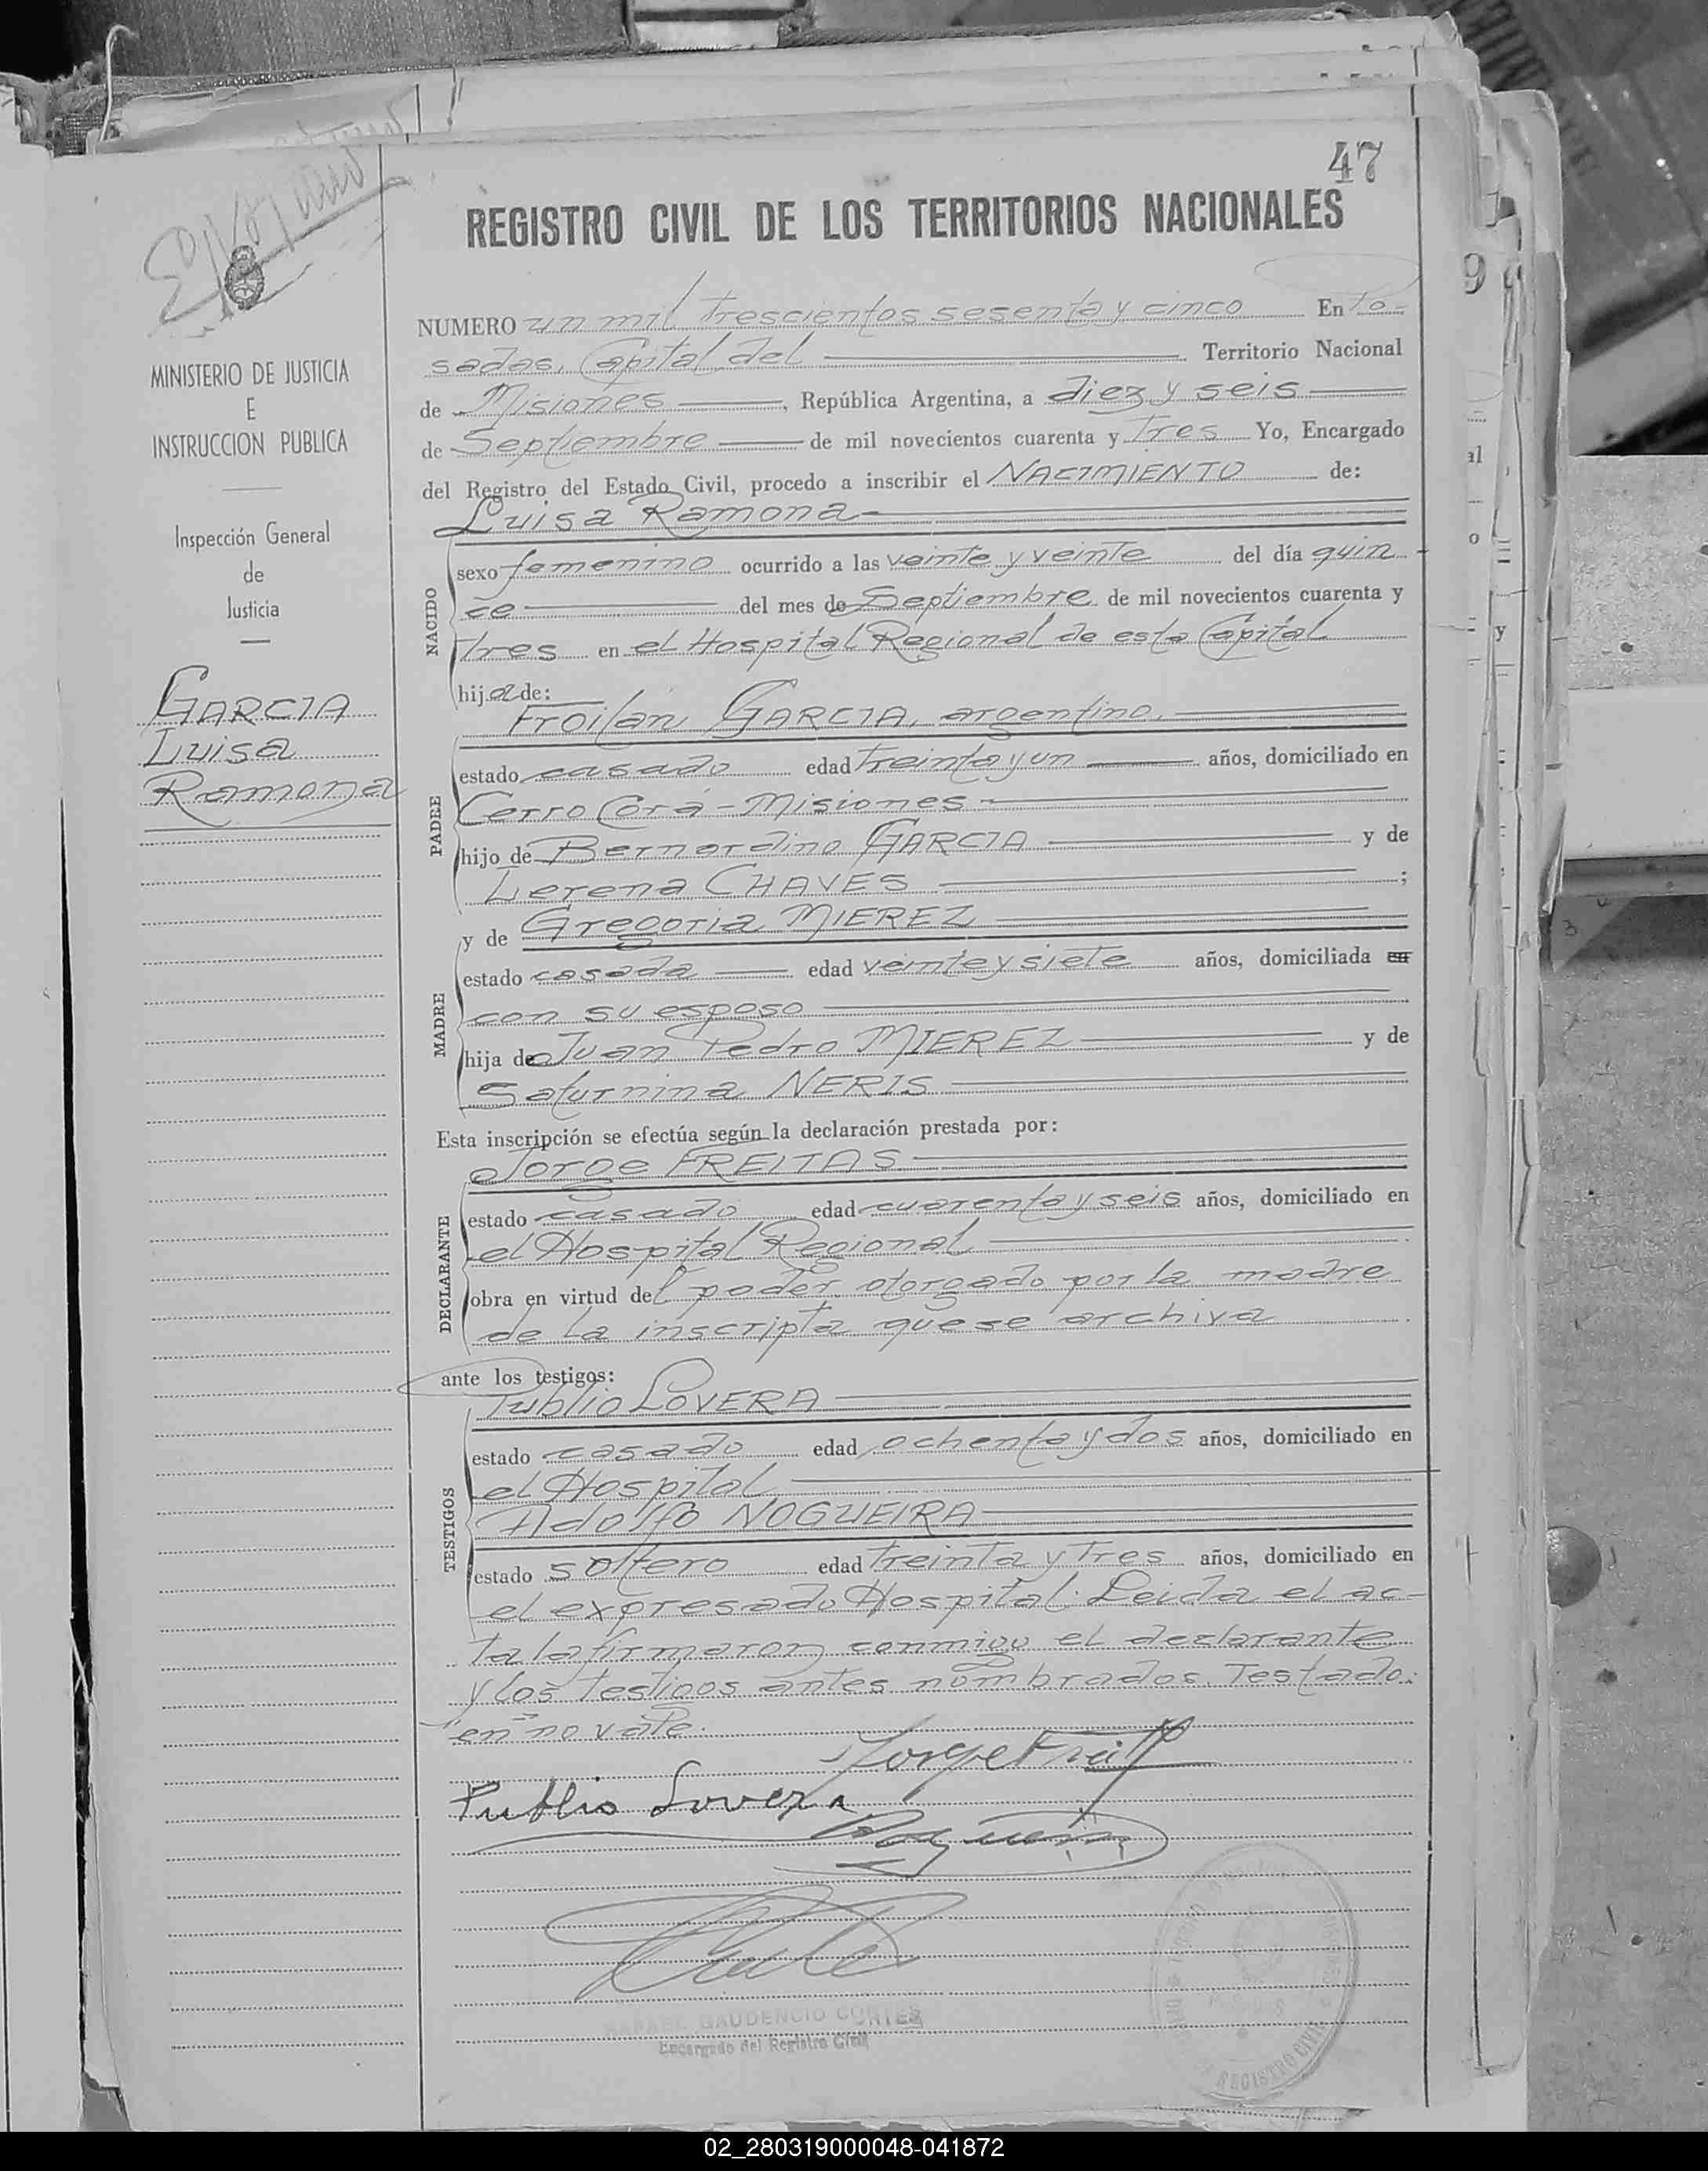 47
REGISTRO CIVIL DE LOS TERRITORIOS NACIONALES
MINISTERIO DE JUSTICIA
E
INSTRUCCION PUBLICA
Inspección General
de
Justicia
GARCIA
Luisa
Ramona
NUMERO un mil trescientos sesenta y cinco En Po-
sadas, Capital del Territorio Nacional
de Misiones, República Argentina, a diez y seis
de Septiembre de mil novecientos cuarenta y Tres Yo, Encargado
del Registro del Estado Civil, procedo a inscribir el NACIMIENTO de:
Luisa Ramona
NACIDO
sexo femenino ocurrido a las veinte y veinte del día quin
ce del mes de Septiembre de mil novecientos cuarenta y
Tres en el Hospital Regional de esta Capital
hija de:
Froilan GARCIA, argentino.
PADRE
estado casado edad Treinta y un años, domiciliado en
Cerro Corá - Misiones
hijo de Bernardino GARCIA y de
Lerena CHAVES ;
y de Gregoria MIEREZ
MADRE
estado casada edad veinte y siete años, domiciliada en
con su esposo
hija de Juan Pedro MIEREZ y de
Saturnina NERIS
Esta inscripción se efectúa según la declaración prestada por:
Jorge FREITAS
DECLARANTE
estado casado edad cuarenta y seis años, domiciliado en
el Hospital Regional
obra en virtud del poder otorgado por la madre
de la inscripta que se archiva
ante los testigos:
Publio LOVERA
TESTIGOS
estado casado edad ochenta y dos años, domiciliado en
el Hospital
Adolfo NOGUEIRA
estado soltero edad Treinta y Tres años, domiciliado en
el expresado Hospital. Leida el ac-
ta la firmaron conmigo el declarante
y los testigos antes nombrados. Testado:
"en" no vale.
Jorge Freitas
Publio Lovera
GAUDENCIO CORTES
Encargado del Registro Civil
REGISTRO CIVIL
9
al
o
y
02_280319000048-041872